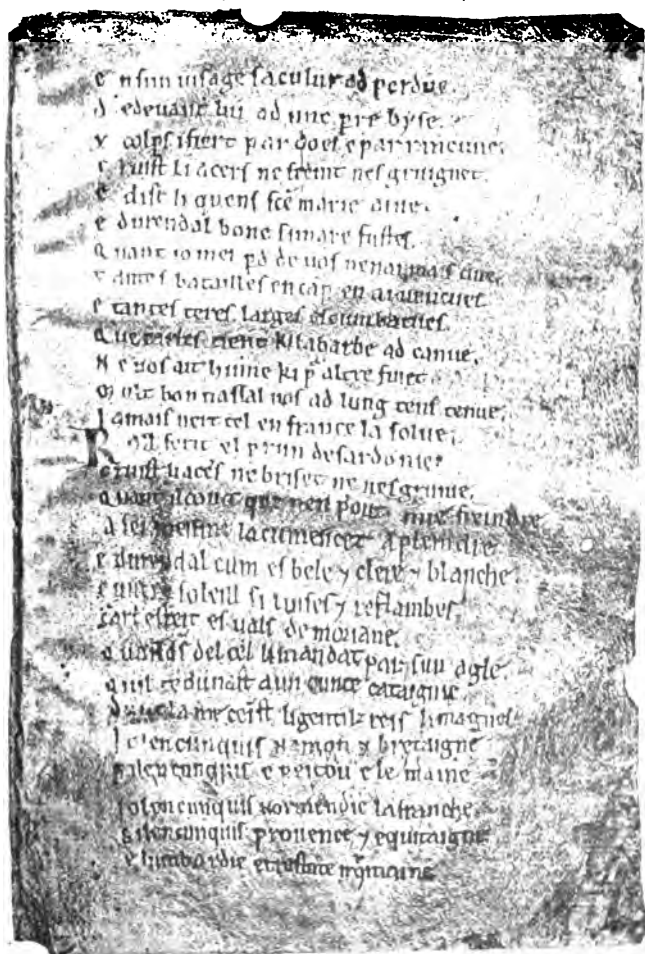 e n sun uisage sa culur ad perdue.
d edeuant lui ad une pre byse.
x colps i fiert par doel e par rancune.
c ruist li acers ne freint nes gruignet.
e dist li quens sce marie aiue.
e durendal bone si mare fustes.
q uant io mei pd de uos nen ai mais cure.
t antes batailles en cāp en ai uencues.
e tantes teres larges escumbatues.
q ue carles tient ki la barbe ad canue.
N e uos ait hume ki p altre fuiet.
m ult bon uassal uos ad lung tens tenue.
J amais nert tel en france la solue.
R oll ferit el prun de sardonie.
c ruist li acers ne briset ne nes grunie.
q uant il co uit que nen pout mie freindre
a sei meisme la cumencet a pleindre
e durendal cum es bele ⁊ clere ⁊ blanche.
cuntre soleill si luises ⁊ reflambes.
carl esteit es uals de moriane.
q uant ds del cel li mandat par sun agle.
q uil te dunast a un cunte cataignie.
dunc la me ceinst li gentilz reis li magnes
J o len cunquis namon ⁊ bretaigne
si len cunquis e peitou e le maine
jo len cunquis normendie la franche.
si len cunquis prouence ⁊ equitaigne
e lumbardie e trestute romaine